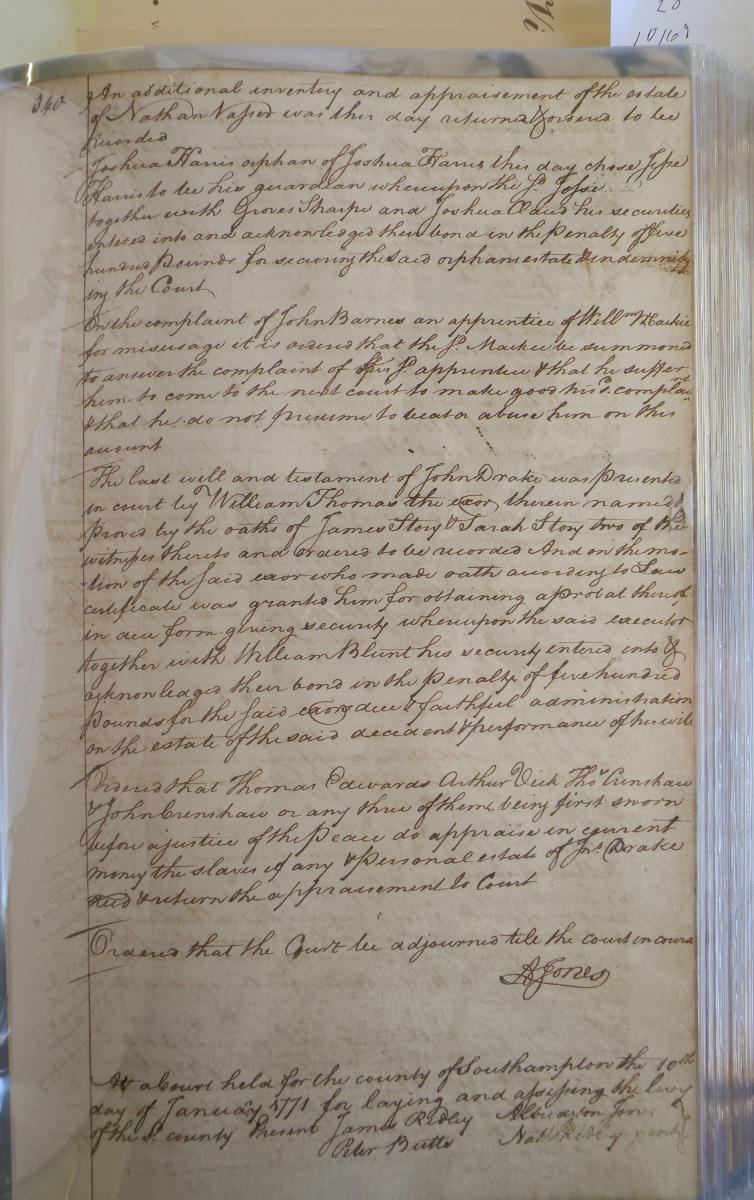 20
340
An additional inventory and appraisement of the estate
of Nathan Vasser was this day returned & ordered to be
recorded
Joshua Harris orphan of Joshua Harris this day chose Jesse
Harris to be his guardian whereupon the sd. Jesse
together with Groves Sharpe and Joshua Claud his securities
entered into and acknowledged their bond in the Penalty of five
hundred Pounds for securing the said orphans estate & indemnify
ing the Court
On the complaint of John Barnes an apprentice of Willm. Mackie
for misusage it is ordered that the sd. Mackie be summoned
to answer the complaint of his sd. apprentice & that he suffer
him to come to the next court to make good his sd. complat.
& that he do not presume to beat or abuse him on this
account
The last will and testament of John Drake was Presented
in court by William Thomas the exor therein named &
Proved by the oaths of James Story & Sarah Story two of the
witnesses thereto and ordered to be recorded And on the mo-
-tion of the said exor who made oath according to Law
certificate was granted him for obtaining a probat thereof
in due form giving security whereupon the said executor
together with William Blunt his security entered into &
acknowledged their bond in the Penalty of five hundred
Pounds for the said exors due & faithful administration
on the estate of the said decedent & performance of his will
Ordered that Thomas Edwards Arthur Vick Thos. Crenshaw
& John Crenshaw or any three of them being first sworn
before a justice of the Peace do appraise in current
money the slaves if any & Personal estate of Jno. Drake
decd & return the appraisement to Court
Ordered that the Court be adjourned till the court in course
A Jones
At a Court held for the county of Southampton the 10th
day of January 1771 for laying and assessing the levy
of the sd. county Present James Ridley Albridgton Jones
Peter Butts Nath Ridley gent